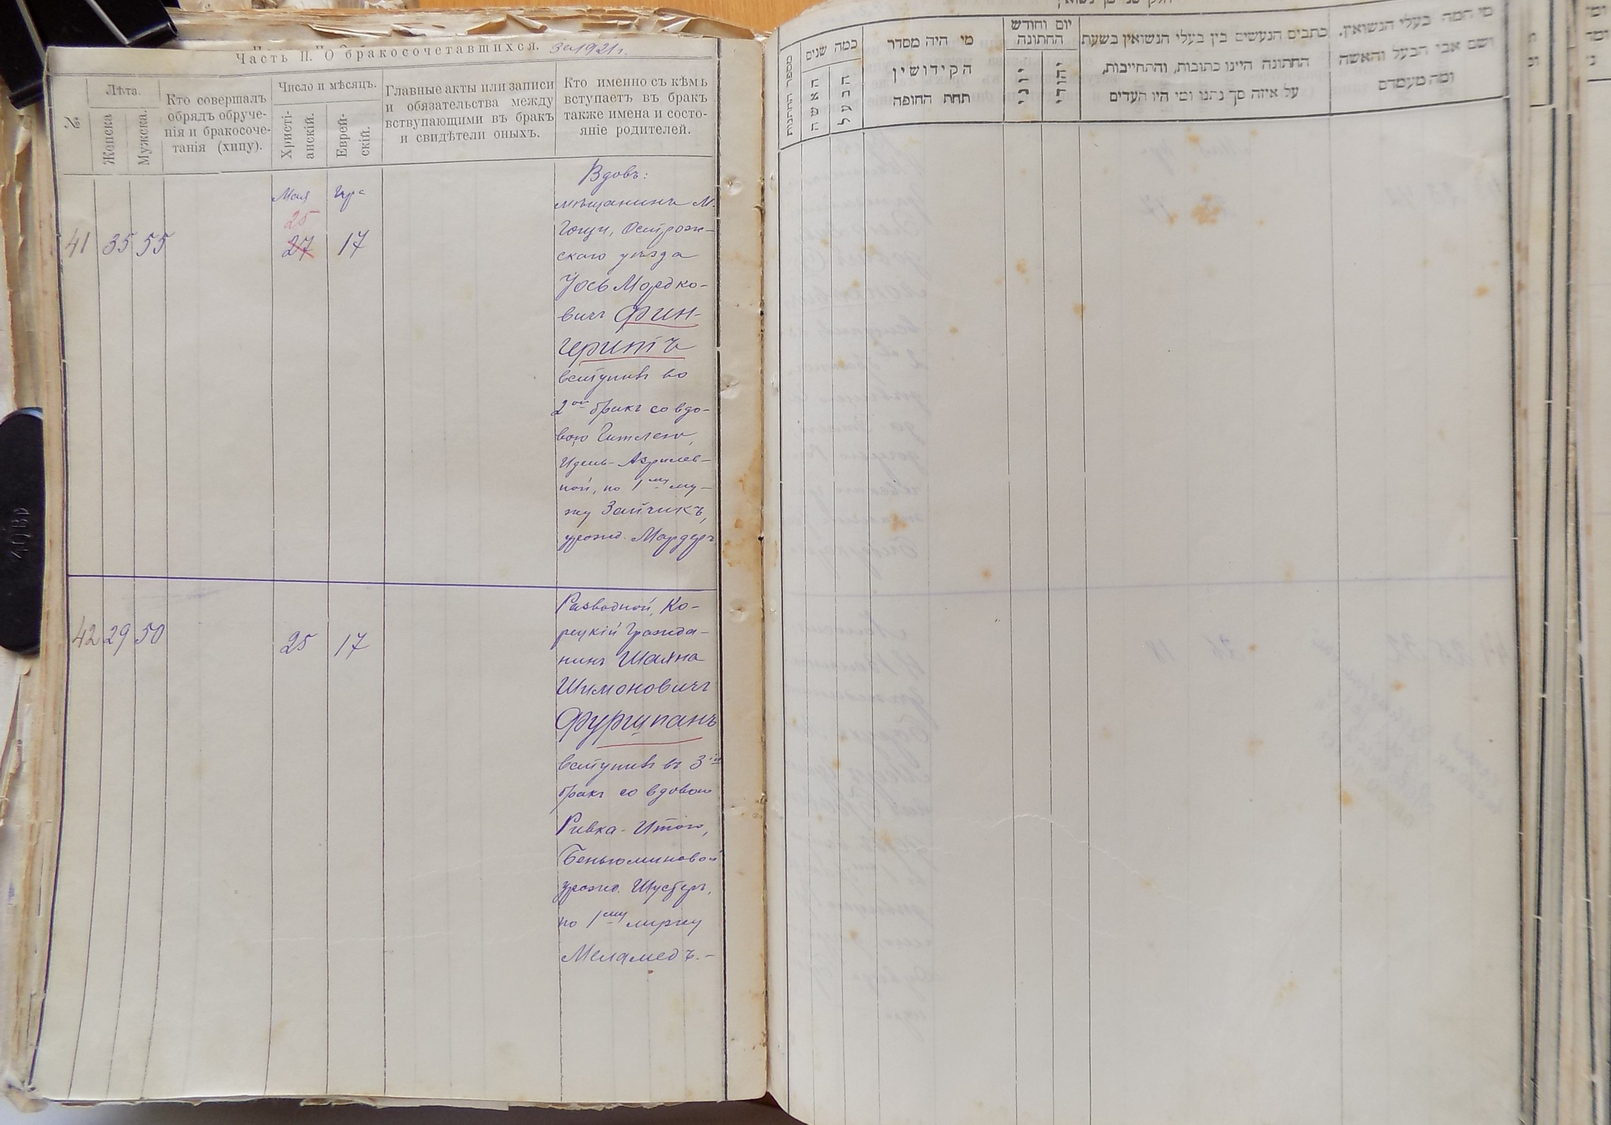 Часть II. О бракосочетавшихся. За 1921 г.
№
Лѣта.
Женска
Мужска.
Кто совершалъ
обрядъ обруче-
нія и бракосоче-
танія (хипу).
Число и мѣсяцъ.
Христі-
анскій.
Еврей-
скій.
Главные акты или записи
и обязательства между
вступающими въ бракъ
и свидѣтели оныхъ.
Кто именно съ кѣмъ
вступаетъ въ бракъ
также имена и состо-
яніе родителей.
41 35 55
Мая
25
27
17
Вдовъ:
мѣщанинъ М.
Гощи, Острож-
скаго уѣзда
Іось Мордко-
вичъ Фин-
геритъ
вступивъ во
2ой бракъ со вдо-
вою
ной, по 1му му-
жу Зайчикъ,
урожд. Мардеръ
42 29 50
25 17
Разводной, Ко-
рецкій Гражда-
нинъ Шаяна
Шимоновичъ
Фурщпанъ
вступивъ въ 3ій
бракъ со вдовою
Ривка-Итою,
Беньюминовой
урожд. Шустеръ,
по 1му мужу
Меламедъ.-
מספר החתונות
כמה שנים
האשה
הבעל
מי היה מסדר
הקידושין
תחת החופה
יום וחודש
החתונה
יוני
יהודי
כתבים הנעשים בין בעלי הנשואין בשעת
החתונה היינו כתובות, והתחייבות,
על איזה סך נתנו ומי היו העדים
מי המה בעלי הנשואין,
ושם אבי הבעל והאשה
ומה מעמדם